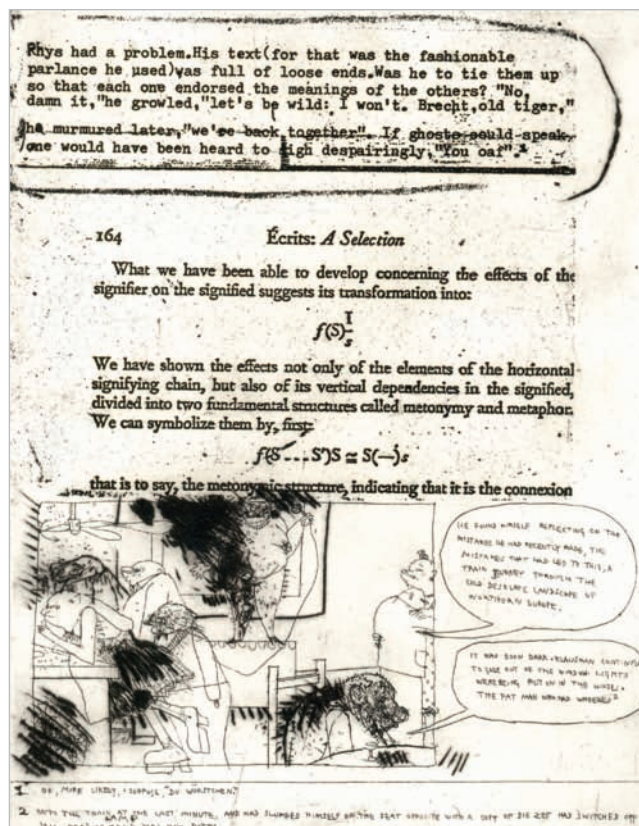 Rhys had a problem.His text(for that was the fashionable
parlance he used)was full of loose ends.Was he to tie them up
so that each one endorsed the meanings of the others? "No,
damn it,"he growled,"let's be wild: I won't. Brecht,old tiger,"
he murmured later,"we're back together". If ghosts could speak,
one would have been heard to sigh despairingly,"You oaf".¹
164 Écrits: A Selection
What we have been able to develop concerning the effects of the
signifier on the signified suggests its transformation into:
f(S) I/s
We have shown the effects not only of the elements of the horizontal
signifying chain, but also of its vertical dependencies in the signified,
divided into two fundamental structures called metonymy and metaphor.
We can symbolize them by, first:
f(S....S')S ≅ S(—)s
that is to say, the metonymic structure, indicating that it is the connexion
HE FOUND HIMSELF REFLECTING ON THE
MISTAKES HE HAD RECENTLY MADE, THE
MISTAKES THAT HAD LED TO THIS, A
TRAIN JOURNEY THROUGH THE
COLD DESOLATE LANDSCAPE OF
NORTHERN EUROPE.
IT HAD BEEN DARK. KLAUSMAN
TO GAZE OUT OF THE WINDOW LIGHTS
WERE BEING PUT ON IN THE
THE FAT MAN WHO HAD ²
1 OR, MORE LIKELY, I SUPPOSE, "DU
2 INTO THE TRAIN AT THE LAST MINUTE, AND HAD SLUMPED HIMSELF ON THE SEAT OPPOSITE WITH A COPY OF DIE ZEIT HAD SWITCHED OFF
LAMP